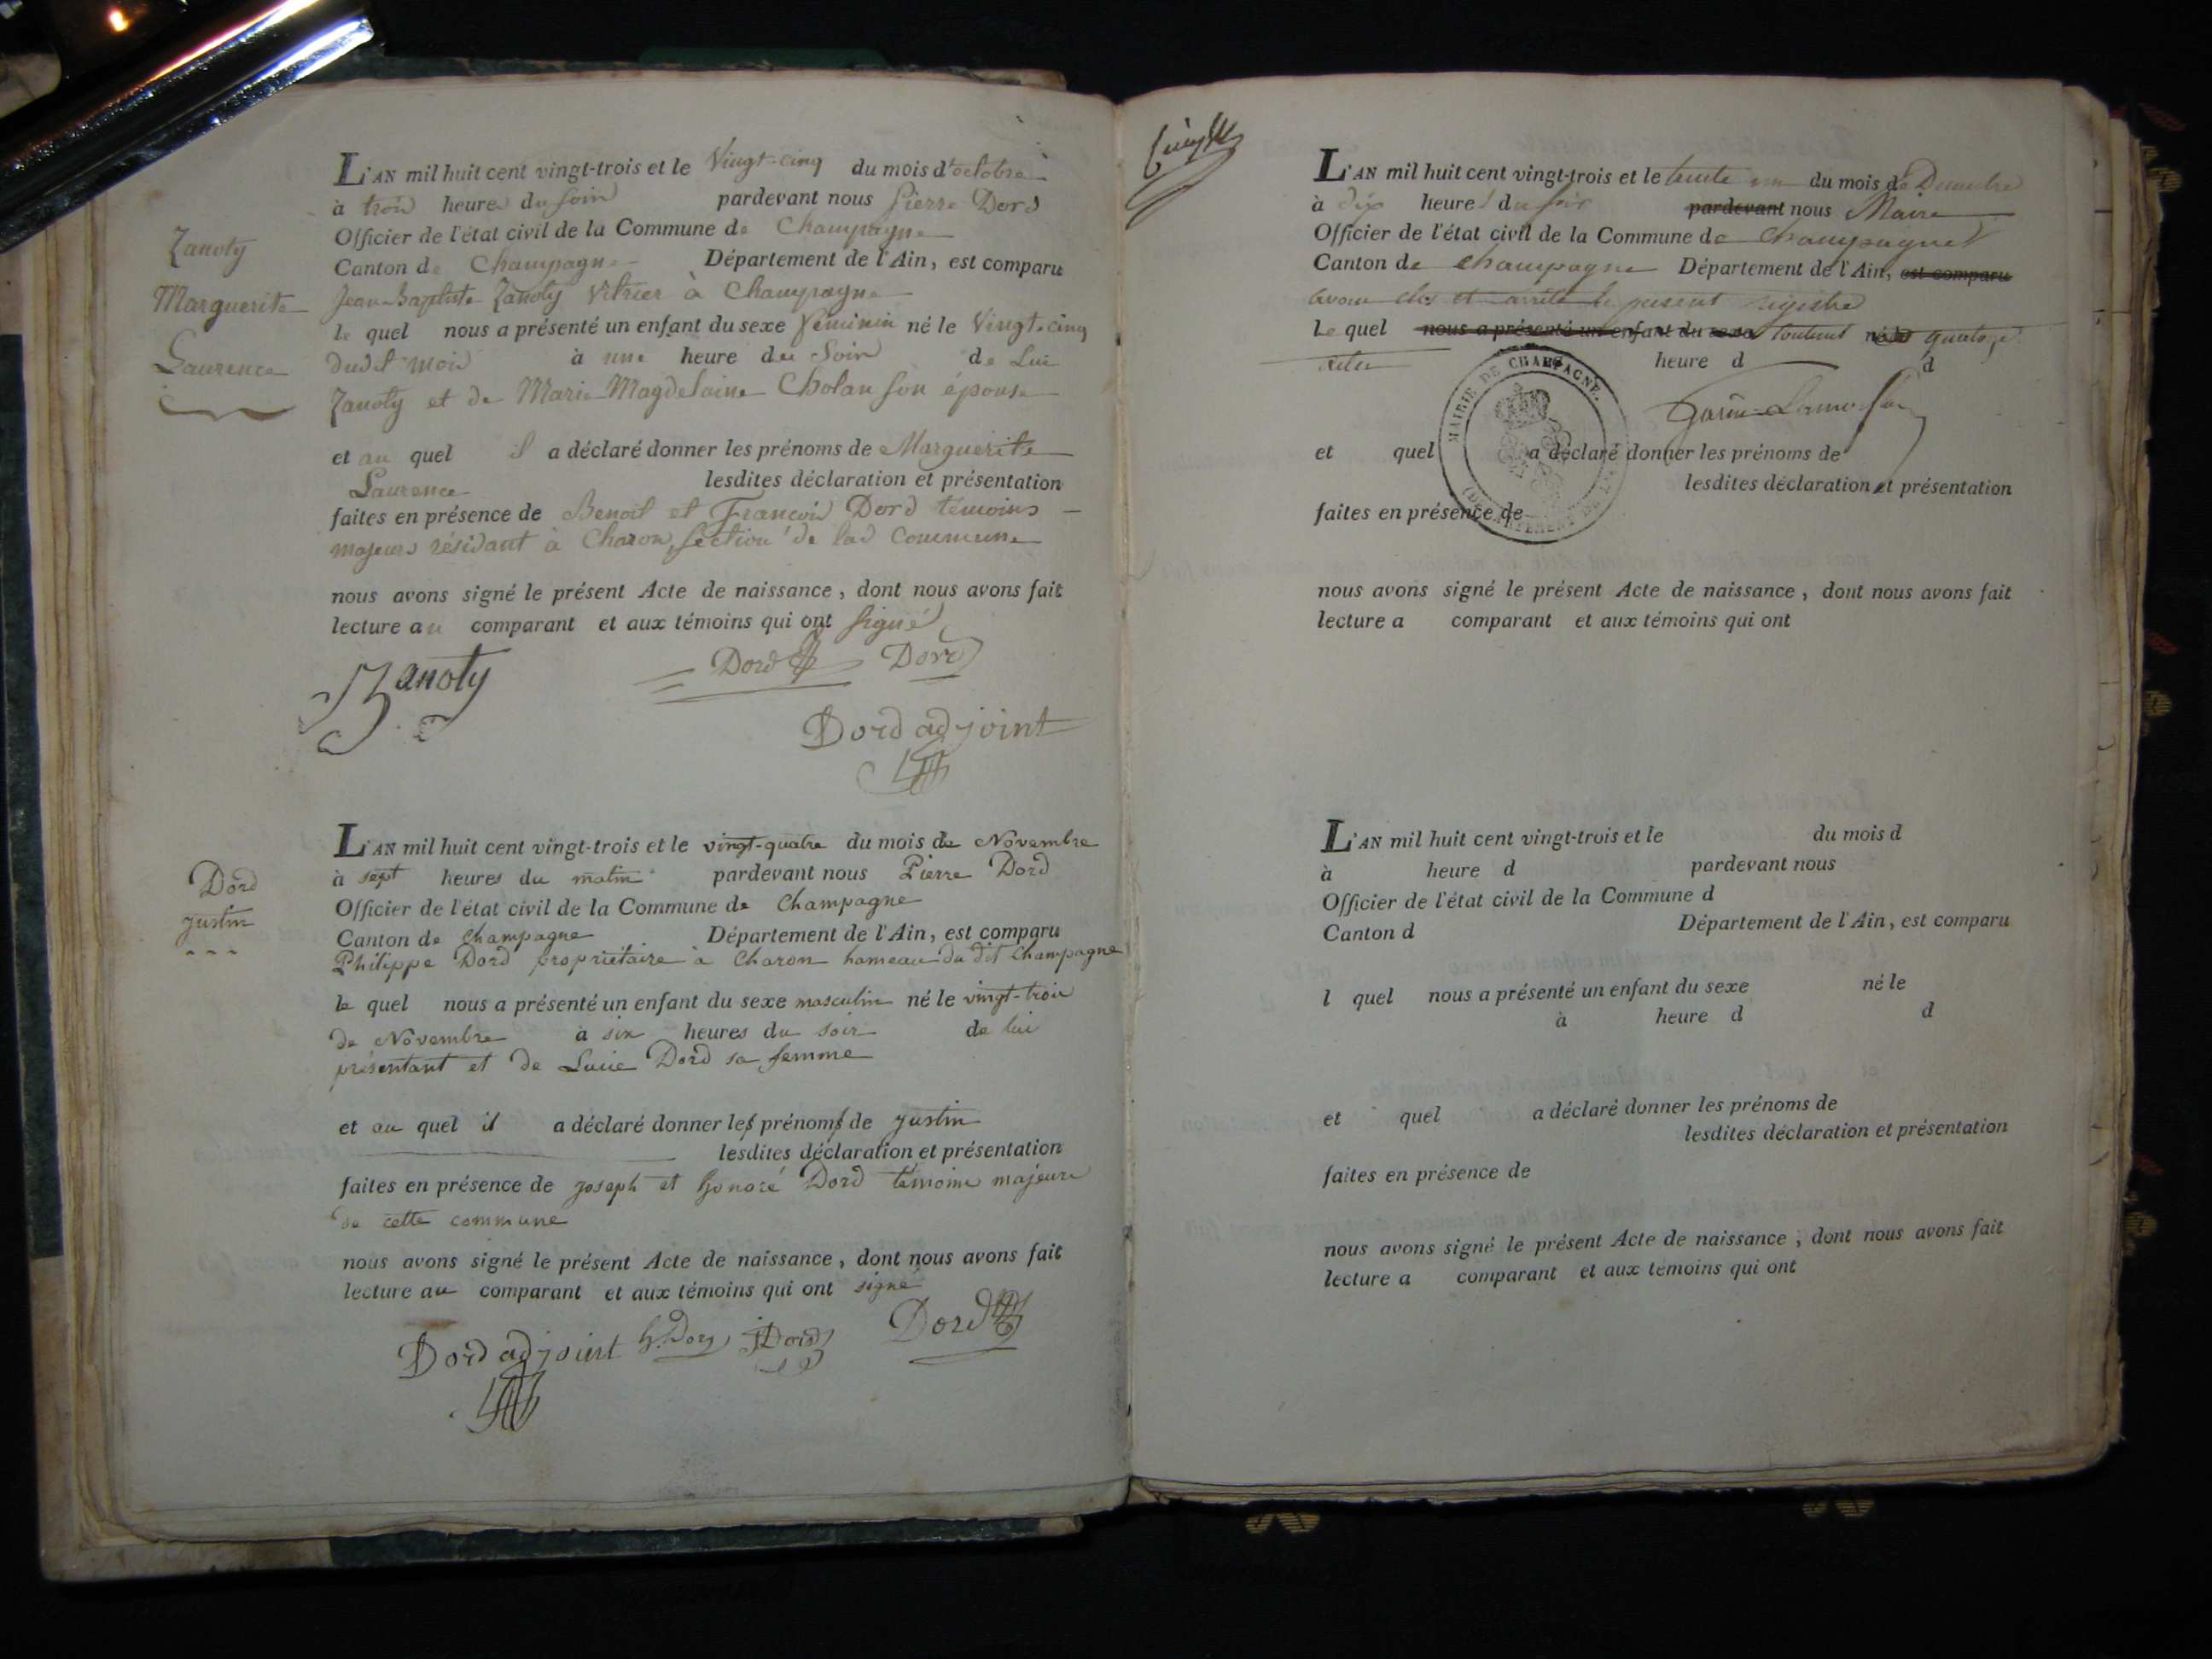 Zanoty
Marguerite
Laurence
L'AN mil huit cent vingt-trois et le Vingt-cinq du mois d'octobre
à trois heures du soir pardevant nous Pierre Dord
Officier de l'état civil de la Commune de Champagne
Canton de Champagne Département de l'Ain, est comparu
Jean-Baptiste Zanoty Vitrier à Champagne
le quel nous a présenté un enfant du sexe féminin né le Vingt-cinq
dudit mois à une heure du Soir de Lui
Zanoty et de Marie Magdelaine Cholan son épouse
et au quel il a déclaré donner les prénoms de Marguerite
Laurence lesdites déclaration et présentation
faites en présence de Benoit et François Dord témoins
majeurs résidant à Charon, section de lad Commune
nous avons signé le présent Acte de naissance, dont nous avons fait
lecture au comparant et aux témoins qui ont signé
Zanoty
Dord Dord
Dord adjoint
Dord
justin
L'AN mil huit cent vingt-trois et le vingt-quatre du mois de Novembre
à sept heures du matin pardevant nous Pierre Dord
Officier de l'état civil de la Commune de Champagne
Canton de Champagne Département de l'Ain, est comparu
Philippe Dord propriétaire à Charon hameau du dit Champagne
le quel nous a présenté un enfant du sexe masculin né le vingt-trois
de Novembre à six heures du soir de lui
présentant et de Lucie Dord sa femme
et au quel il a déclaré donner les prénoms de justin
lesdites déclaration et présentation
faites en présence de joseph et honoré Dord témoins majeurs
de cette commune
nous avons signé le présent Acte de naissance, dont nous avons fait
lecture au comparant et aux témoins qui ont signé
Dord adjoint h. Dord j Dord Dord
L'AN mil huit cent vingt-trois et le trente un du mois de Decembre
à dix heures du soir pardevant nous Maire
Officier de l'état civil de la Commune de Champagne
Canton de Champagne Département de l'Ain, est comparu
avons clos et arrêté le present registre
le quel nous a présenté un enfant du sexe contient né le quatorze
actes heure d d
MAIRIE DE CHAMPAGNE.
et quel a déclaré donner les prénoms de
lesdites déclaration et présentation
faites en présence de
nous avons signé le présent Acte de naissance, dont nous avons fait
lecture a comparant et aux témoins qui ont
L'AN mil huit cent vingt-trois et le du mois d
à heure d pardevant nous
Officier de l'état civil de la Commune d
Canton d Département de l'Ain, est comparu
l quel nous a présenté un enfant du sexe né le
à heure d d
et quel a déclaré donner les prénoms de
lesdites déclaration et présentation
faites en présence de
nous avons signé le présent Acte de naissance, dont nous avons fait
lecture a comparant et aux témoins qui ont